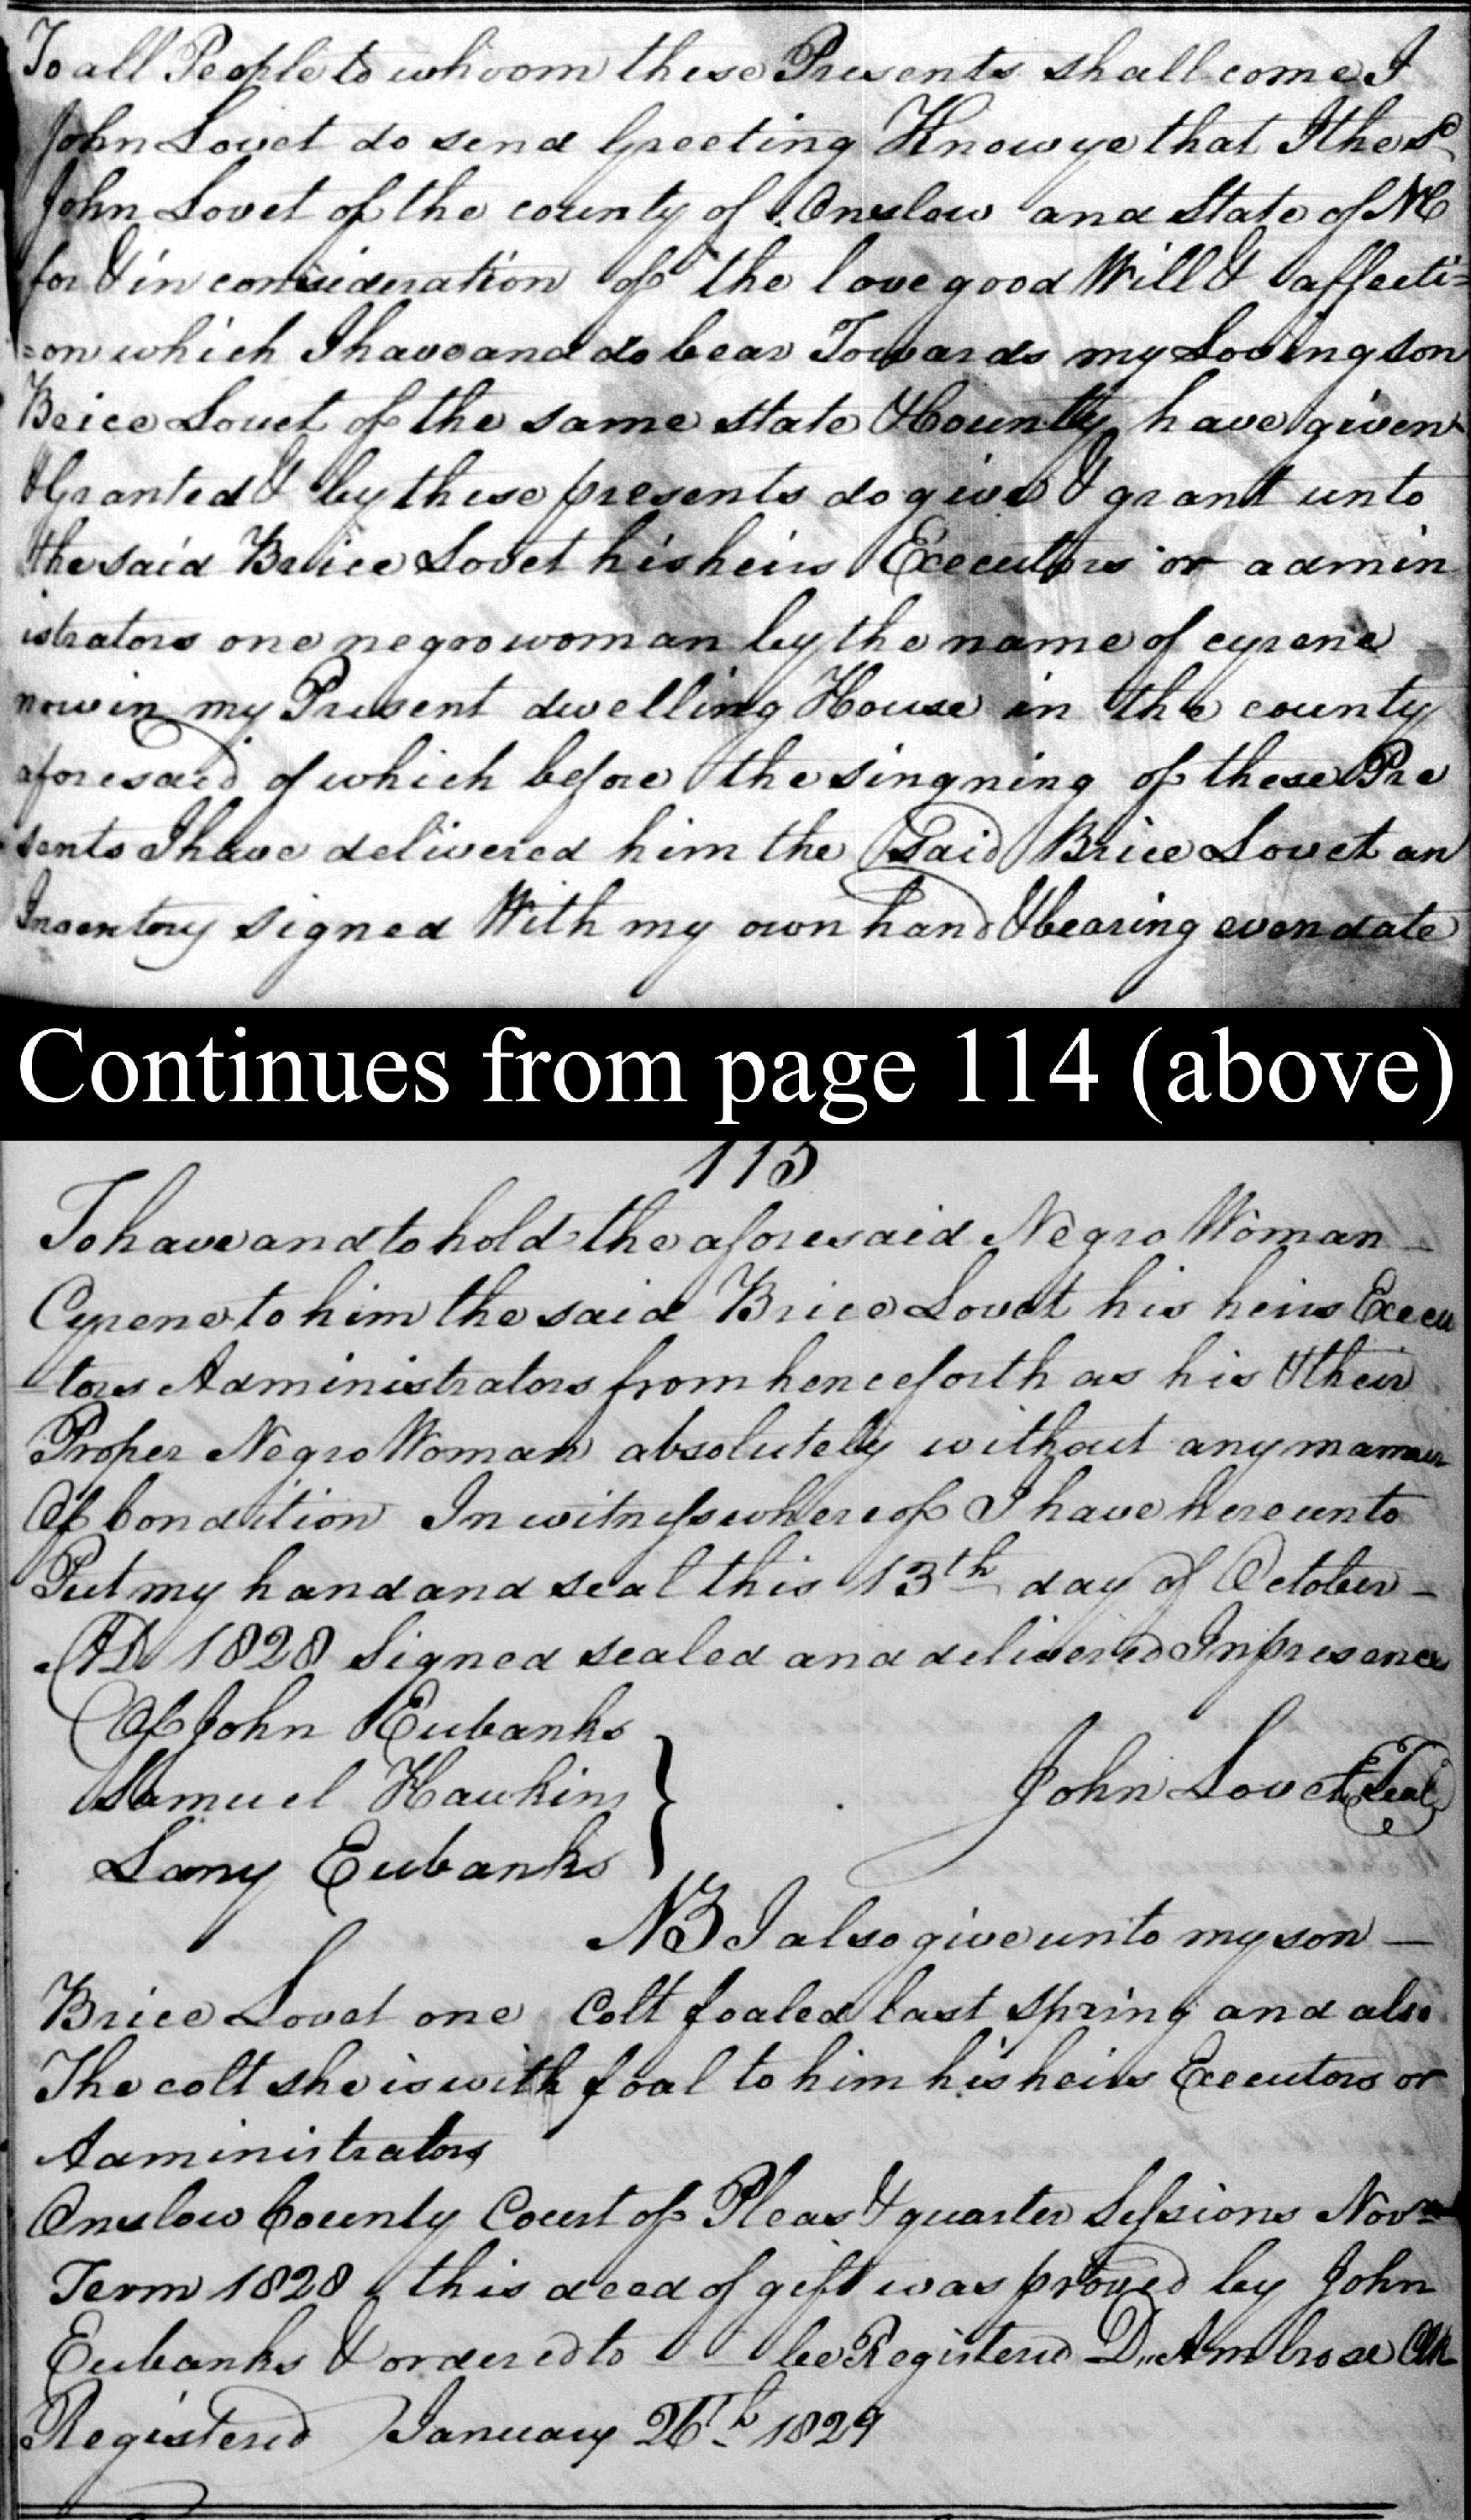 To all People to whoom these Presents shall come I
John Lovet do send Greeting Know ye that I the sd
John Lovet of the county of Onslow and State of NC
for & in consideration of the love good Will & affecti=
=on which I have and do bear Towards my Loving son
Brice Lovet of the same state & County have given
& Granted & by these presents do give & grant unto
the said Brice Lovet his heirs Executors or admin
istrators one negro woman by the name of cyrene
now in my Present dwelling House in the county
aforesaid of which before the singning of these Pre
sents I have delivered him the Said Brice Lovet an
Inventory signed With my own hand & bearing even date
Continues from page 114 (above)
115
To have and to hold the aforesaid Negro Woman
Cyrene to him the said Brice Lovet his heirs Execu
tors Administrators from henceforth as his & their
Proper Negro Woman absolutely without any manner
Of Condition In witness whereof I have hereunto
Put my hand and seal this 13th day of October
AD 1828 Signed sealed and delivered In presence
Of John Eubanks
Samuel Hawkins
John Lovet Seal
Lany Eubanks
NB I also give unto my son
Brice Lovet one Colt foaled last Spring and also
The colt she is with foal to him his heirs Executors or
Administrators
Onslow County Court of Pleas & quarter Sessions Novr
Term 1828 this deed of gift was proved by John
Eubanks & ordered to be Registered D. Ambrose Clk
Registered January 26th 1829